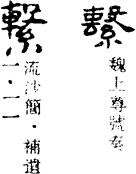 繫
魏上尊號奏
繫
流沙簡·補遺
一·二一